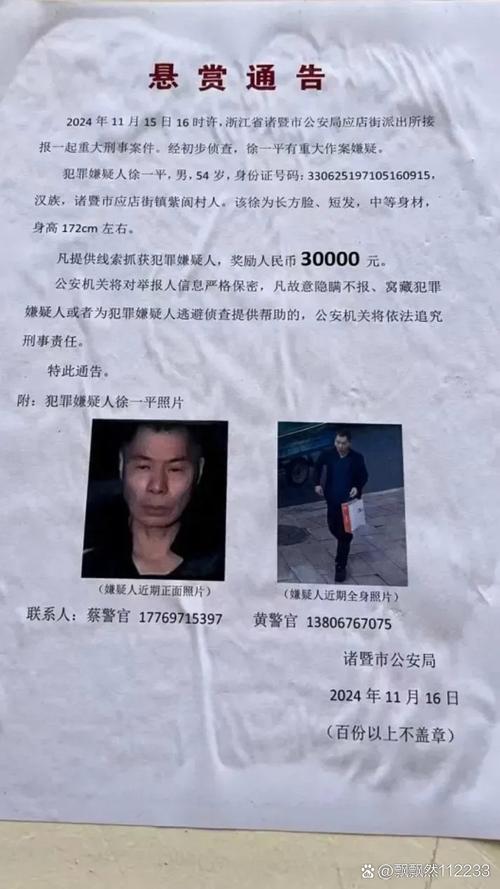 悬赏通告
2024年11月15日16时许，浙江省诸暨市公安局应店街派出所接
报一起重大刑事案件。经初步侦查，徐一平有重大作案嫌疑。
犯罪嫌疑人徐一平，男，54岁，身份证号码：330625197105160915，
汉族，诸暨市应店街镇紫阆村人。该徐为长方脸、短发，中等身材，
身高172cm左右。
凡提供线索抓获犯罪嫌疑人，奖励人民币30000元。
公安机关将对举报人信息严格保密，凡故意隐瞒不报、窝藏犯罪
嫌疑人或者为犯罪嫌疑人逃避侦查提供帮助的，公安机关将依法追究
刑事责任。
特此通告。
附：犯罪嫌疑人徐一平照片
（嫌疑人近期正面照片） （嫌疑人近期全身照片）
联系人：蔡警官 17769715397 黄警官 13806767075
诸暨市公安局
2024年11月16日
（百份以上不盖章）
@飘飘然112233